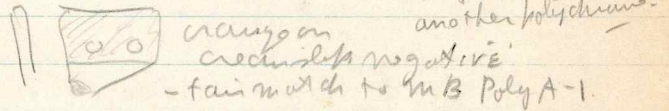 another polychrome
orange on
cream slip negative
- fair match to MB Poly A-1.